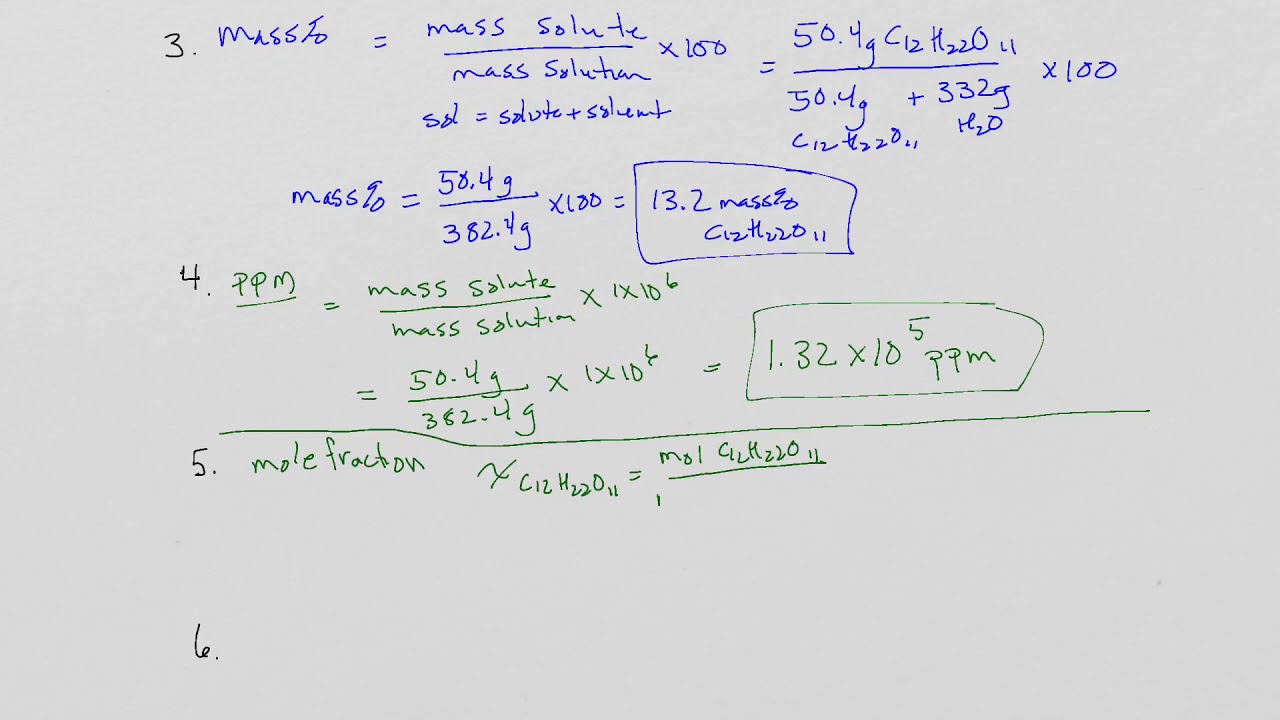 3. Mass% = mass solute / mass solution × 100 = 50.4g C12H22O11 / 50.4g C12H22O11 + 332g H2O × 100
sol = solute + solvent
mass% = 50.4g / 382.4g × 100 = 13.2 mass% C12H22O11
4. PPM = mass solute / mass solution × 1×10^6
= 50.4g / 382.4g × 1×10^6 = 1.32 × 10^5 ppm
5. mole fraction χ C12H22O11 = mol C12H22O11
6.